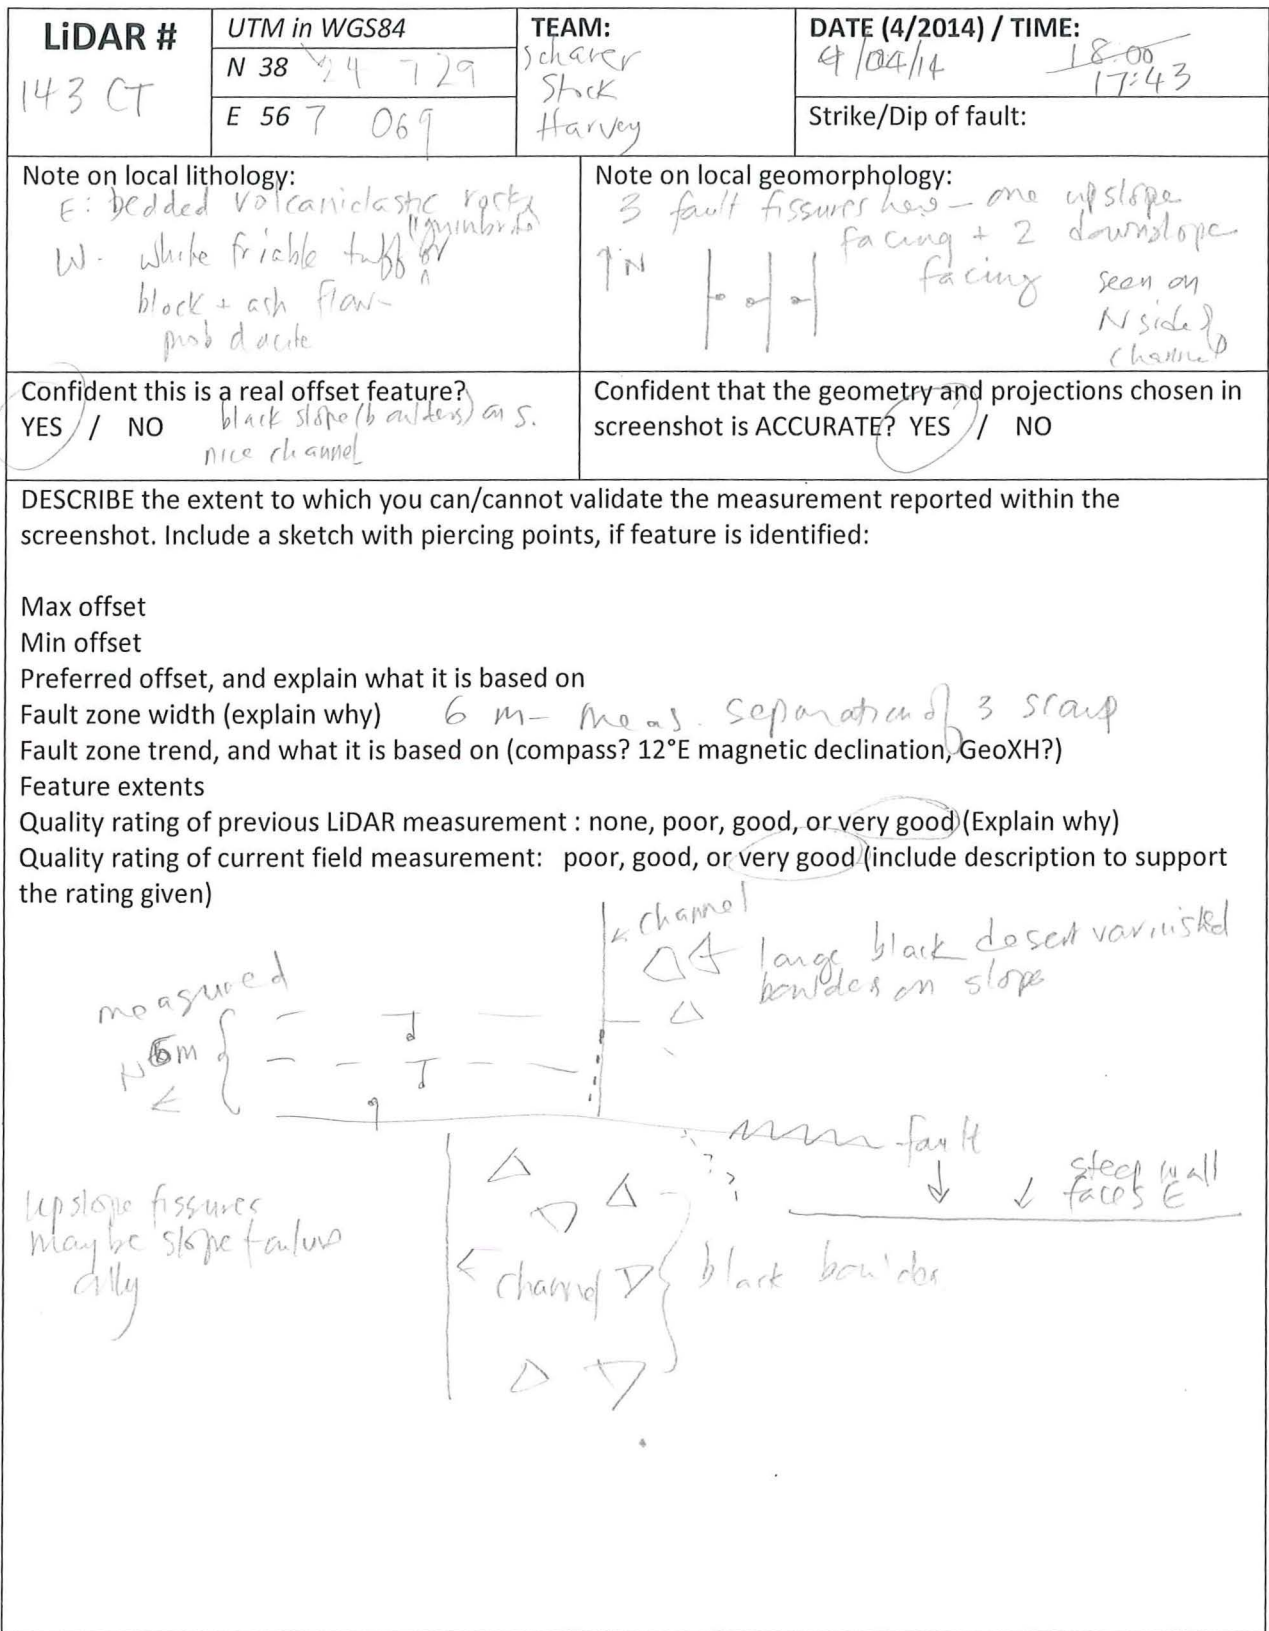 LiDAR #
143 CT
UTM in WGS84
N 38 24 729
E 56 7 069
TEAM:
Scharer
Stock
Harvey
DATE (4/2014) / TIME:
4/04/14
18:00
17:43
Strike/Dip of fault:
Note on local lithology:
E: bedded volcaniclastic rocks
W - white friable tuff "ignimbrite" or
block + ash flow -
prob dacite
Note on local geomorphology:
3 fault fissures here - one upslope
facing + 2 downslope
facing
seen on
N side of
channel
↑N
Confident this is a real offset feature?
YES / NO
black slope (boulders) on s.
nice channel
Confident that the geometry and projections chosen in
screenshot is ACCURATE? YES / NO
DESCRIBE the extent to which you can/cannot validate the measurement reported within the
screenshot. Include a sketch with piercing points, if feature is identified:
Max offset
Min offset
Preferred offset, and explain what it is based on
Fault zone width (explain why) 6 m - meas. separation of 3 scarp
Fault zone trend, and what it is based on (compass? 12°E magnetic declination, GeoXH?)
Feature extents
Quality rating of previous LiDAR measurement : none, poor, good, or very good (Explain why)
Quality rating of current field measurement: poor, good, or very good (include description to support
the rating given)
channel
large black desert varnished
boulders on slope
measured
6m
N
fault
steep wall
faces E
? ?
upslope fissures
maybe slope failure
channel
black boulders